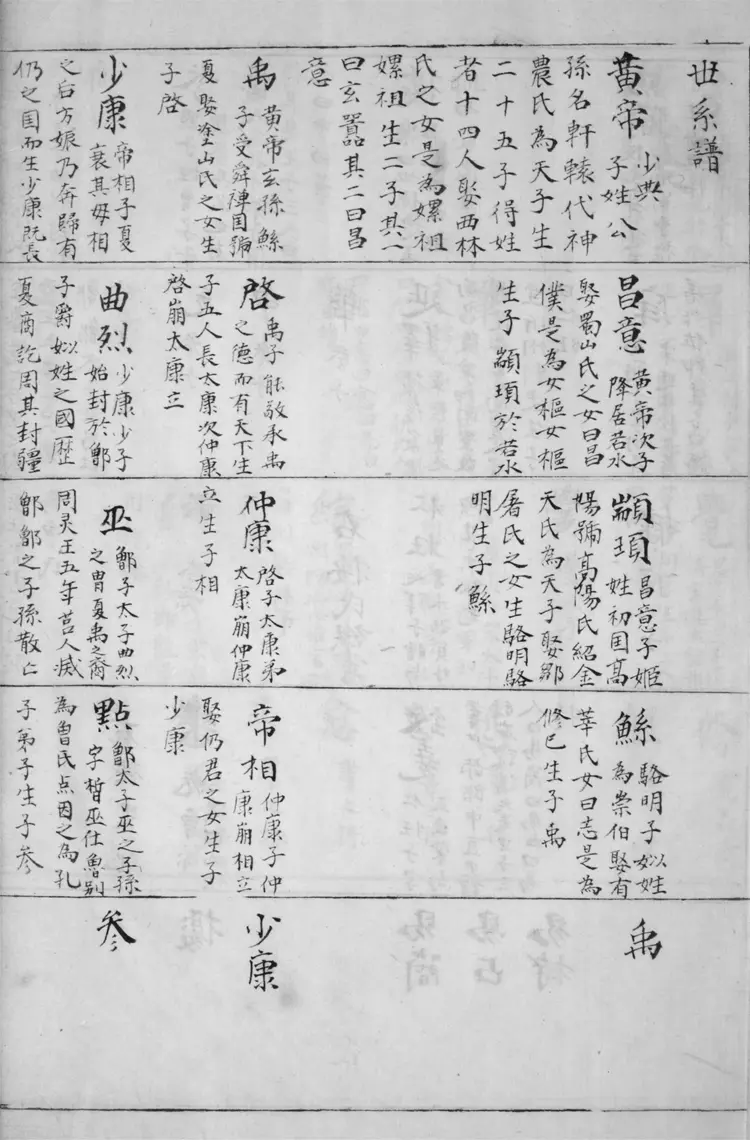 世系譜
黃帝
少典
子姓公
孫名軒轅代神
農氏為天子生
二十五子得姓
者十四人娶西林
氏之女是為嫘祖
嫘祖生二子其一
曰玄囂其二曰昌
意
禹
黃帝玄孫鯀
子受舜禅国號
夏娶塗山氏之女生
子啓
少康
帝相子夏
衰其母相
之后方娠乃奔歸有
仍之国而生少康既長
昌意
黃帝次子
降居若水
娶蜀山氏之女曰昌
僕是為女樞女樞
生子顓頊於若水
啓
禹子能敬承禹
之德而有天下生
子五人長太康次仲康
啓崩太康立
曲烈
少康少子
始封於鄫
子爵姒姓之國歷
夏商訖周其封疆
顓頊
昌意子姬
姓初国高
陽號高陽氏紹金
天氏為天子娶鄒
屠氏之女生駱明駱
明生子鯀
仲康
啓子太康弟
太康崩仲康
立生子相
巫
鄫子太子曲烈
之曹夏禹之裔
周灵王五年莒人滅
鄫鄫之子孫散亡
鯀
駱明子姒姓
為崇伯娶有
莘氏女曰志是為
修已生子禹
帝相
仲康子仲
康崩相立
娶仍君之女生子
少康
點
鄫太子巫之子孫
字晳巫仕魯别
為魯氏点因之為孔
子弟子生子参
禹
少康
参